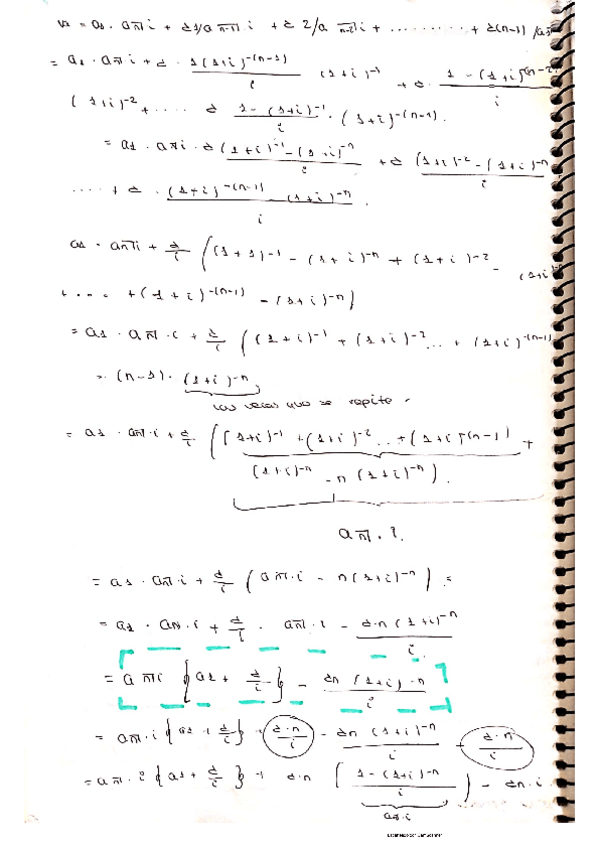 = a1 · an⌉i + d ·  (1+i)^-(n-1) / i  (1+i)^-1 + d · 1 - (1+i)^-(n-2) / i
(1+i)^-2 + ···· d 1 - (1+i)^-1 / i · (1+i)^-(n-1).
= a1 · an⌉i · d (1+i)^-1 - (1+i)^-n / i + d (1+i)^-2 - (1+i)^-n / i
···· + d · (1+i)^-(n-1) (1+i)^-n / i .
a1 · an⌉i + d/i ( (1+1)^-1 - (1+i)^-n + (1+i)^-2 - (1+i)
+ ···· + (1+i)^-(n-1) - (1+i)^-n )
= a1 · an⌉·i + d/i ( (1+i)^-1 + (1+i)^-2 ... + (1+i)^-(n-1)
- (n-1) · (1+i)^-n
las veces que se repite
= a1 · an⌉·i + d/i ( (1+i)^-1 + (1+i)^-2 .. + (1+i)^-(n-1) +
(1+i)^-n - n (1+i)^-n ) .
an⌉·i.
= a1 · an⌉·i + d/i ( an⌉·i - n(1+i)^-n ) =
= a1 · an⌉·i + d/i · an⌉·i - d·n (1+i)^-n / i
= an⌉i { a1 + d/i } - dn (1+i)^-n / i
= an⌉·i { a1 + d/i } + d·n/i - dn (1+i)^-n / i - d·n/i
= an⌉·i { a1 + d/i } + d·n ( 1 - (1+i)^-n / i ) - dn·i